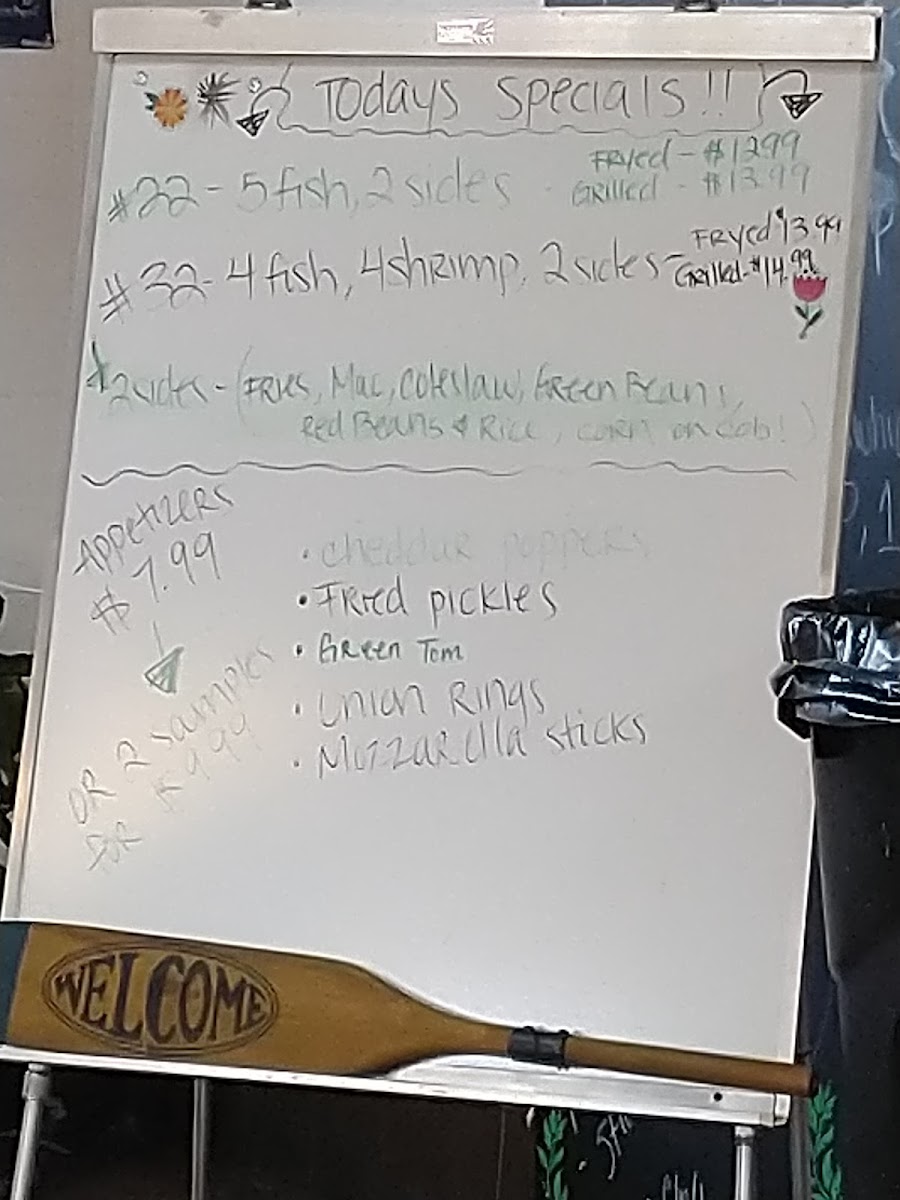 Todays Specials!!
#22 - 5 fish, 2 sides - FRyed - $1299
GRilled - $13.99
#32 - 4 fish, 4 shRimp, 2 sides - FRyed $13.99
GRilled - $14.99
*2 sides - (FRies, Mac, Coleslaw, GReen Beans,
Red Beans & Rice, corn on cob!)
AppetizeRs
$7.99
OR 2 samples
FOR $9.99
• cheddar poppers
• FRied pickles
• GReen Tom
• Onion Rings
• MozzaRella sticks
WELCOME